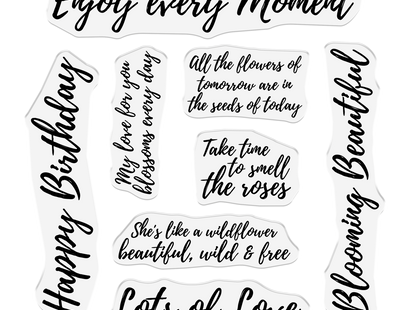 Enjoy every Moment
Happy Birthday
My love for you
blossoms every day
All the flowers of
tomorrow are in
the seeds of today
Take time
to smell
the roses
She's like a wildflower
beautiful, wild & free
Lots of Love
Blooming Beautiful